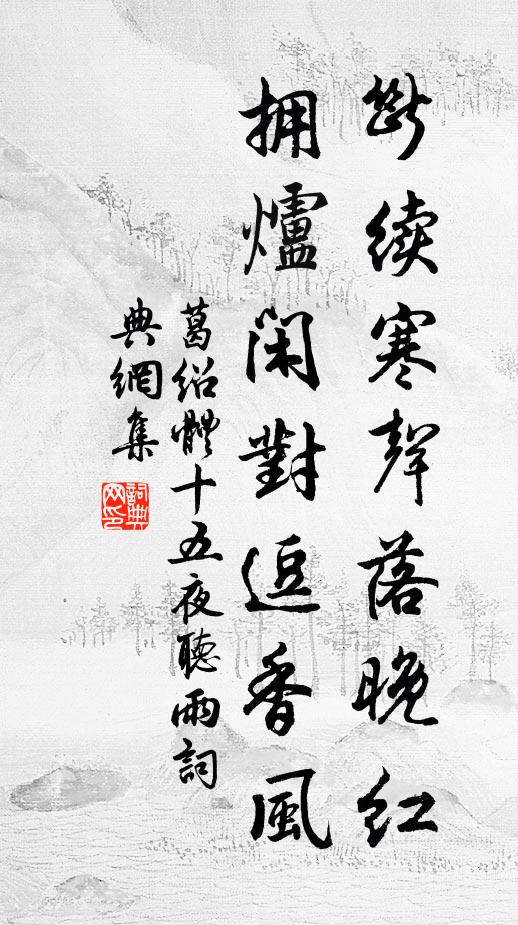 斷续寒聲落晚红
拥爐闲對逗香風
葛绍體十五夜聽雨詞
典網集
詞典
网印